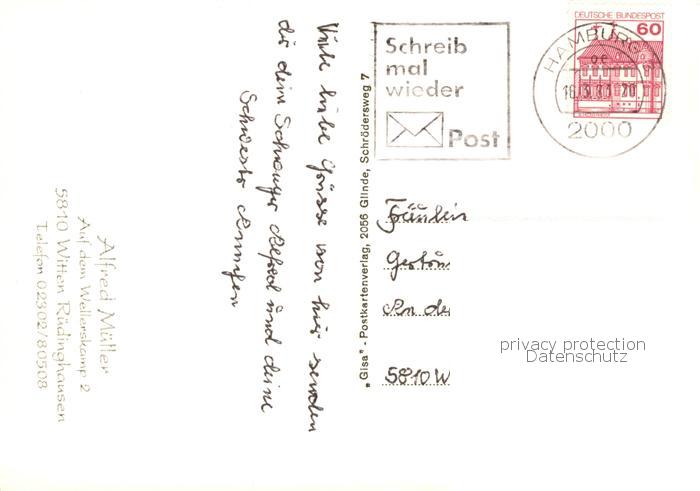 DEUTSCHE BUNDESPOST
60
HAMBURG
2000
Schreib
mal
wieder
Post
Viele liebe Grüsse von hier senden
dir dein Schwager Alfred und deine
Schwester
„Gisa" - Postkartenverlag, 2056 Glinde, Schrödersweg 7
Fräulein
An der
5810 W
privacy protection
Datenschutz
Alfred Müller
Auf dem Wellerskamp 2
5810 Witten Rüdinghausen
Telefon 02302/80508